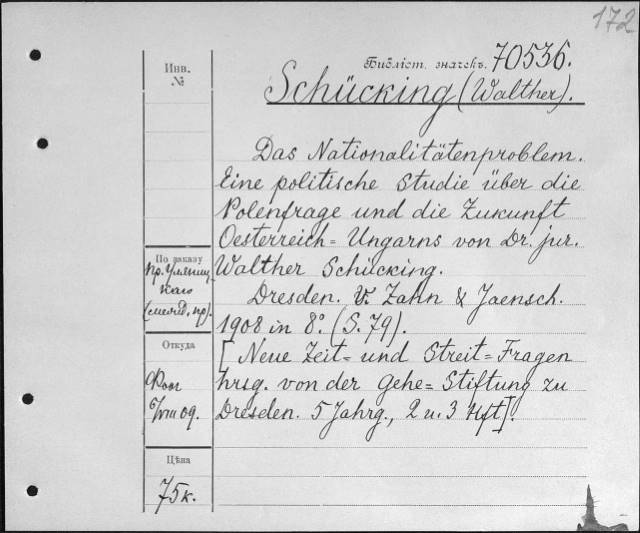 172
Инв.
№
Библіот. значекъ. 70536.
Schücking (Walther).
Das Nationalitätenproblem.
Eine politische Studie über die
Polenfrage und die Zukunft
Oesterreich= Ungarns von Dr. jur.
Walther Schücking.
Dresden. v. Zahn & Jaensch.
1908 in 8º. (S. 79).
[Neue Zeit= und Streit= Fragen
hrsg. von der Gehe= Stiftung zu
Dresden. 5 Jahrg., 2 u. 3 Hft].
По заказу
пр. Уляниц-
каго
Откуда
6/VIII 09.
Цѣна
75к.